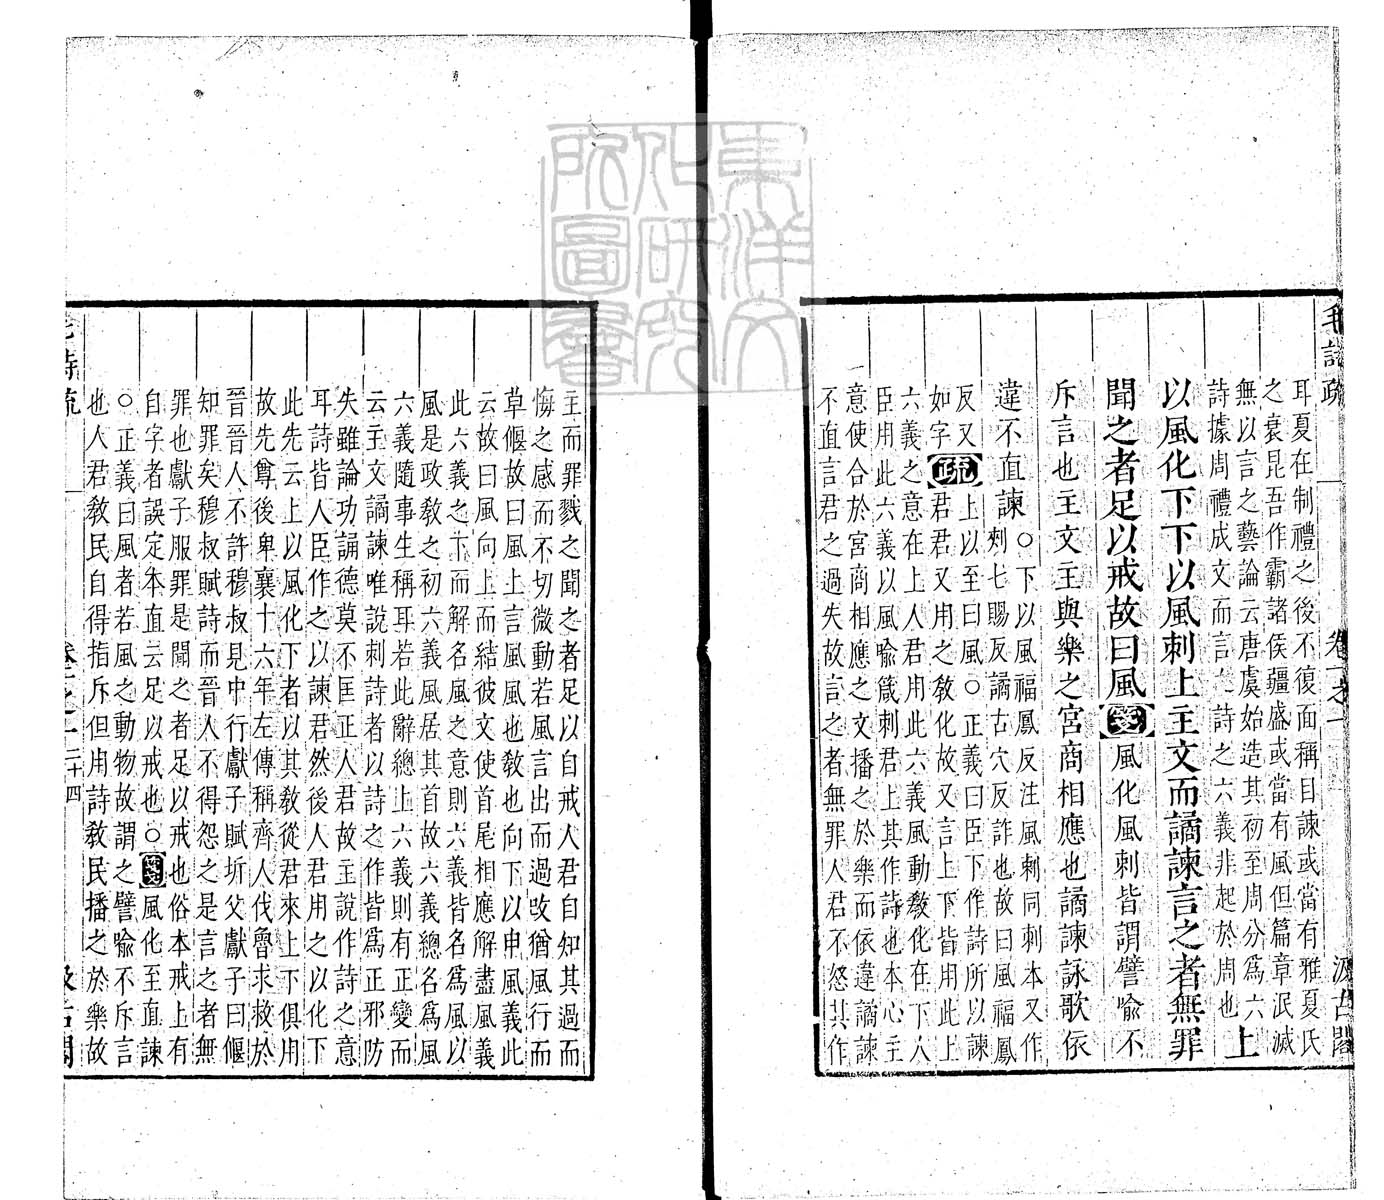 毛詩疏　卷一之一　汲古閣
耳夏在制禮之後不復面稱目諫或當有雅夏氏
之衰昆吾作霸諸侯疆盛或當有風但篇章泯滅
無以言之藝論云唐虞始造其初至周分爲六
詩據周禮成文而言之詩之六義非起於周也　上
以風化下下以風刺上主文而譎諫言之者無罪
聞之者足以戒故曰風箋風化風刺皆謂譬喻不
斥言也主文主與樂之宮商相應也譎諫詠歌依
違不直諫○下以風福鳳反注風刺同刺本又作
刺七賜反譎古穴反詐也故曰風福鳳
反又
如字疏上以至曰風○正義曰臣下作詩所以諫
君君又用之敎化故又言上下皆用此上
六義之意在上人君用此六義風動敎化在下人
臣用此六義以風喻箴刺君上其作詩也本心主
意使合於宮商相應之文播之於樂而依違譎諫
不直言君之過失故言之者無罪人君不怒其作
主而罪戮之聞之者足以自戒人君自知其過而
悔之感而不切微動若風言出而過改猶風行而
草偃故曰風上言風風也敎也向下以申風義此
云故曰風向上而結彼文使首尾相應解盡風義
此六義之下而解名風之意則六義皆名爲風以
風是政敎之初六義風居其首故六義總名爲風
六義隨事生稱耳若此辭總上六義則有正變而
云主文譎諫唯說刺詩者以詩之作皆爲正邪防
失雖論功誦德莫不匡正人君故主說作詩之意
耳詩皆人臣作之以諫君然後人君用之以化下
此先云上以風化下者以其敎從君來上下俱用
故先尊後卑襄十六年左傳稱齊人伐魯求救於
晉晉人不許穆叔見中行獻子賦圻父獻子曰偃
知罪矣穆叔賦詩而晉人不得怨之是言之者無
罪也獻子服罪是聞之者足以戒也俗本戒上有
自字者誤定本直云足以戒也○箋風化至直諫
○正義曰風者若風之動物故謂之譬喻不斥言
也人君敎民自得指斥但用詩敎民播之於樂故
毛詩疏　卷一之一　二十四　汲古閣
東洋文
化研究
所圖書